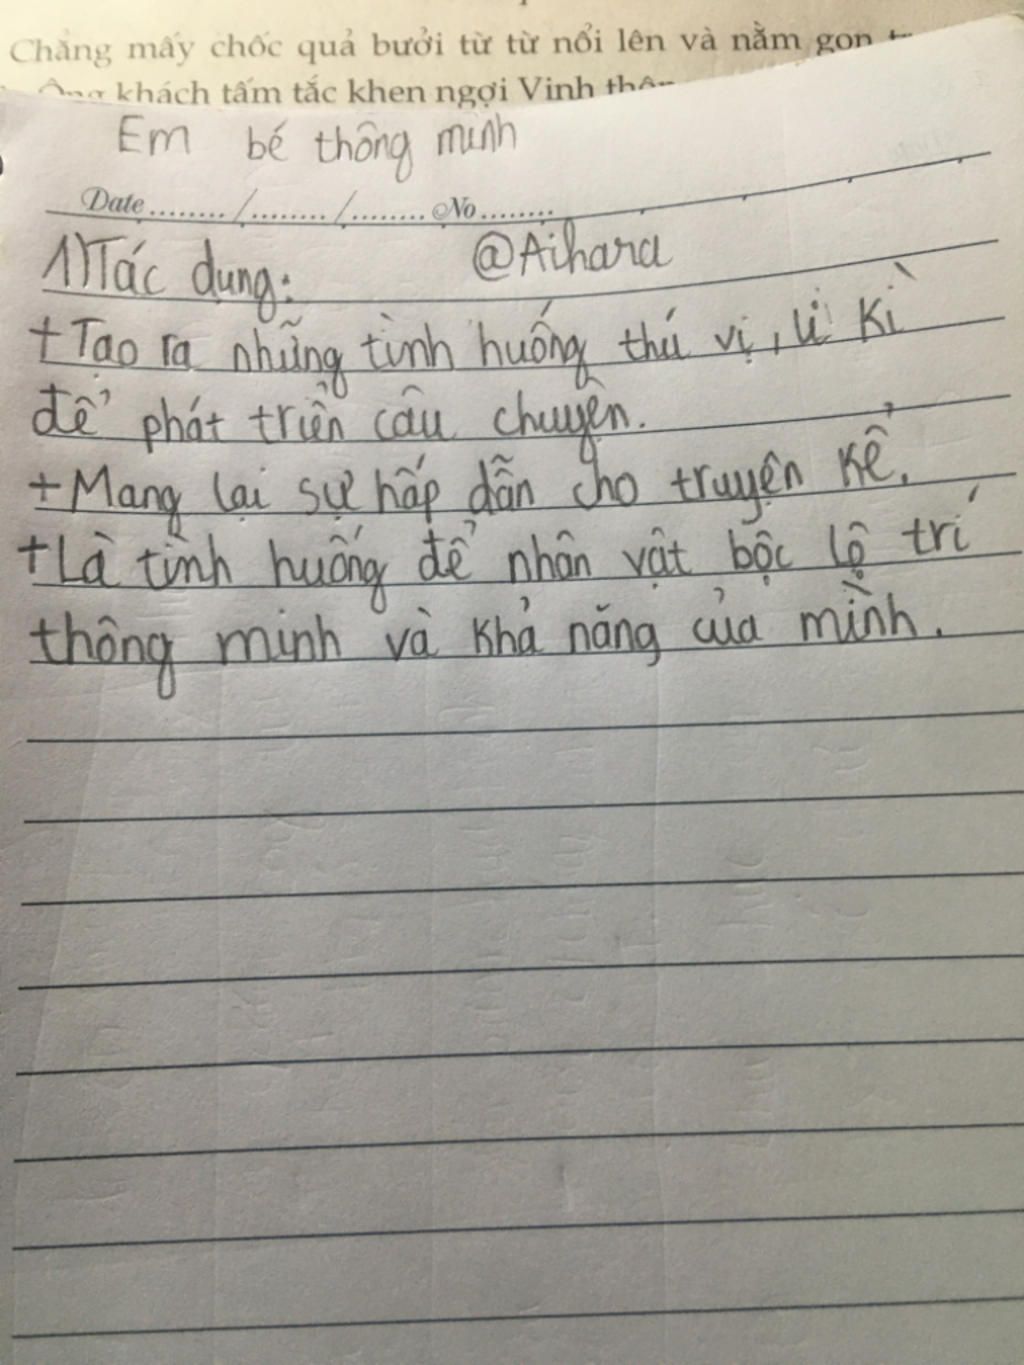 Chẳng mấy chốc quả bưởi từ từ nổi lên và nằm gọn
Ông khách tấm tắc khen ngợi Vinh
Em bé thông minh
Date ......../......../........ No ........
1) Tác dụng: @Aihara
+ Tạo ra những tình huống thú vị, li kì
để phát triển câu chuyện.
+ Mang lại sự hấp dẫn cho truyện kể.
+ Là tình huống để nhân vật bộc lộ trí
thông minh và khả năng của mình.